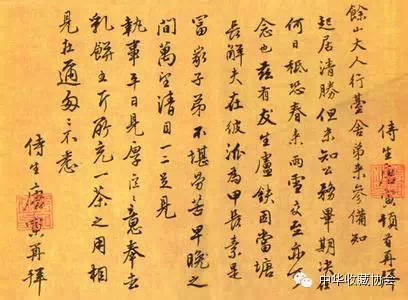 侍生唐寅頓首再拜
餘山大人行臺舍弟来參備知
起居清勝但未知公務畢期決
何日秪恐春来雨雪交至亦
念也茲有友生盧鉄因當塘
長解夫在彼派為甲長素是
富家子弟不堪勞苦早晚之
間萬望清目一二足見
執事平日見厚區〻之意奉去
乳餅五斤所充一茶之用相
見在邇匆〻不悉
侍生唐寅再拜
中华收藏协会